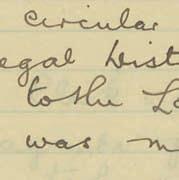 circular
egal Dist
to the Lo
was m